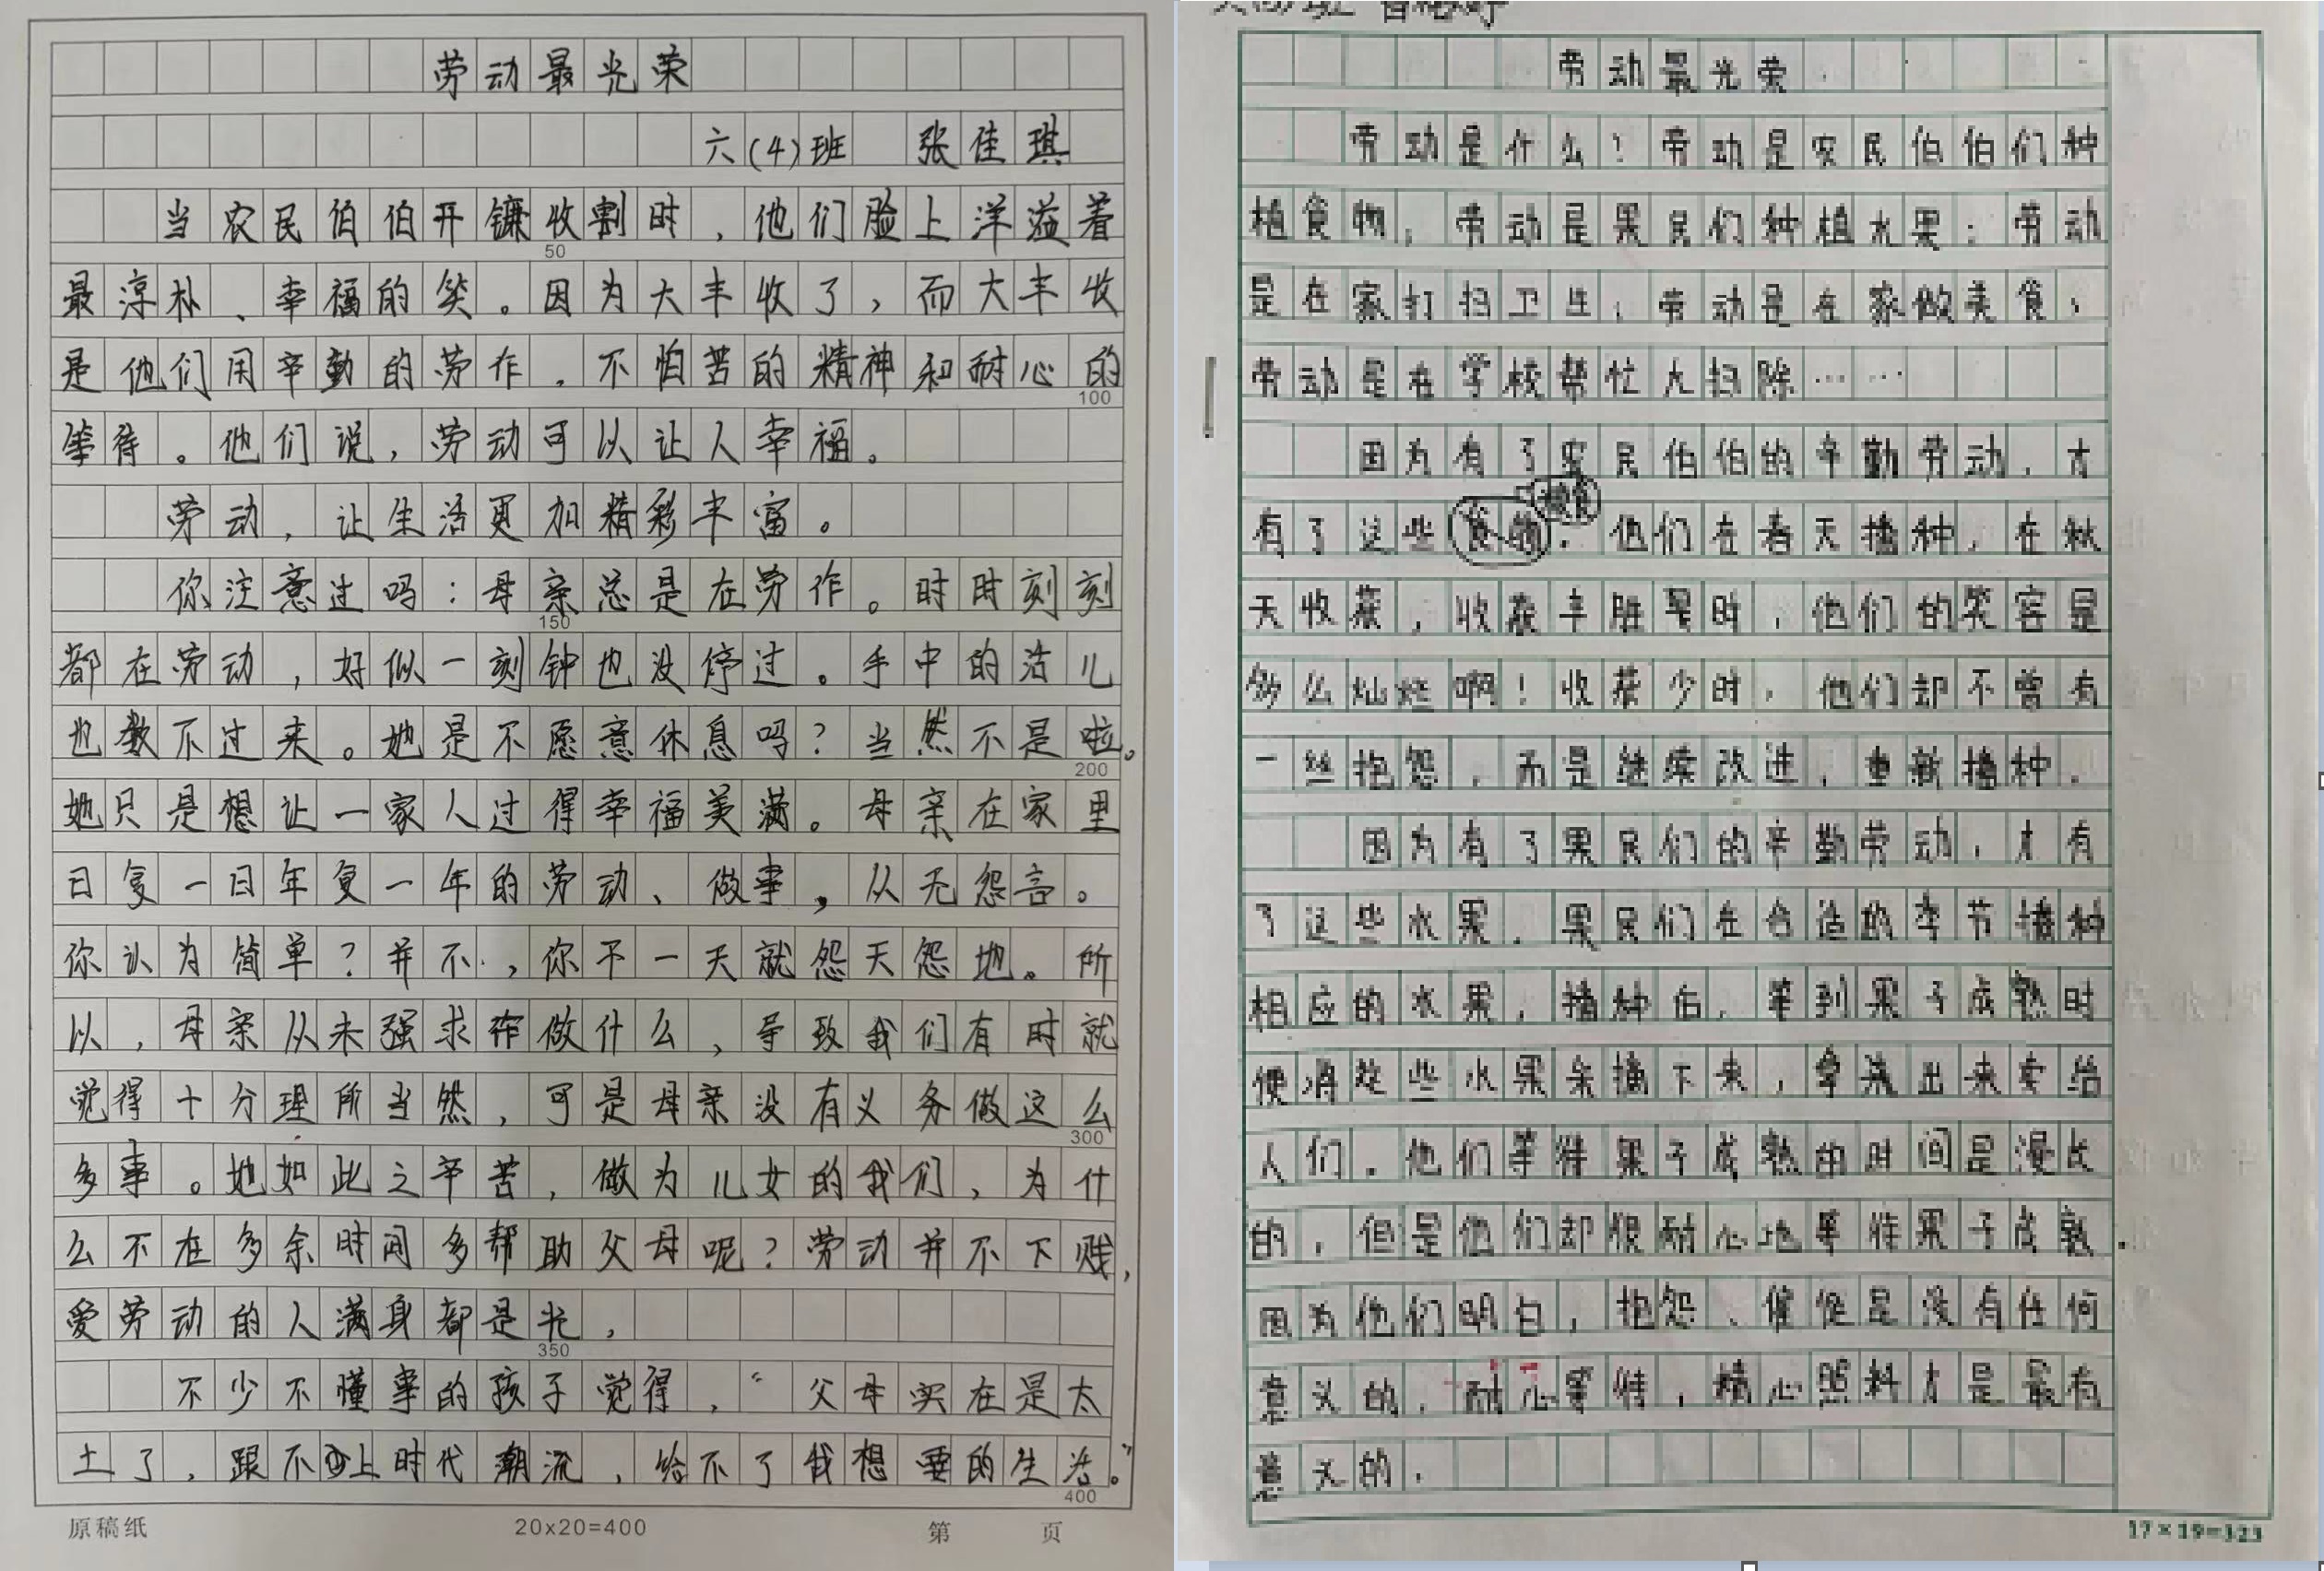 劳动最光荣
六(4)班 张佳琪
当农民伯伯开镰收割时，他们脸上洋溢着
50
最淳朴、幸福的笑。因为大丰收了，而大丰收
是他们用辛勤的劳作，不怕苦的精神和耐心的
100
等待。他们说，劳动可以让人幸福。
劳动，让生活更加精彩丰富。
你注意过吗：母亲总是在劳作。时时刻刻
150
都在劳动，好似一刻钟也没停过。手中的活儿
也数不过来。她是不愿意休息吗？当然不是啦。
200
她只是想让一家人过得幸福美满。母亲在家里
日复一日年复一年的劳动、做事，从无怨言。
你认为简单？并不，你干一天就怨天怨地。所
以，母亲从未强求你做什么，导致我们有时就
觉得十分理所当然，可是母亲没有义务做这么
300
多事。她如此之辛苦，做为儿女的我们，为什
么不在多余时间多帮助父母呢？劳动并不下贱，
爱劳动的人满身都是光，
350
不少不懂事的孩子觉得，“父母实在是太
土了，跟不上时代潮流，给不了我想要的生活。”
400
原稿纸 20x20=400 第 页
劳动最光荣
劳动是什么？劳动是农民伯伯们种
植食物；劳动是果民们种植水果；劳动
是在家打扫卫生；劳动是在家做美食；
劳动是在学校帮忙大扫除……
因为有了农民伯伯的辛勤劳动，才
有了这些粮食。他们在春天播种，在秋
天收获，收获丰胜果时，他们的笑容是
多么灿烂啊！收获少时，他们却不曾有
一丝抱怨，而是继续改进，重新播种。
因为有了果民们的辛勤劳动，才有
了这些水果。果民们在合适的季节播种
相应的水果，播种后，等到果子成熟时
便将这些水果采摘下来，拿出来卖给
人们。他们等待果子成熟的时间是漫长
的，但是他们却很耐心地等待果子成熟。
因为他们明白，抱怨、催促是没有任何
意义的，耐心等待，精心照料才是最有
意义的。
17×19=323